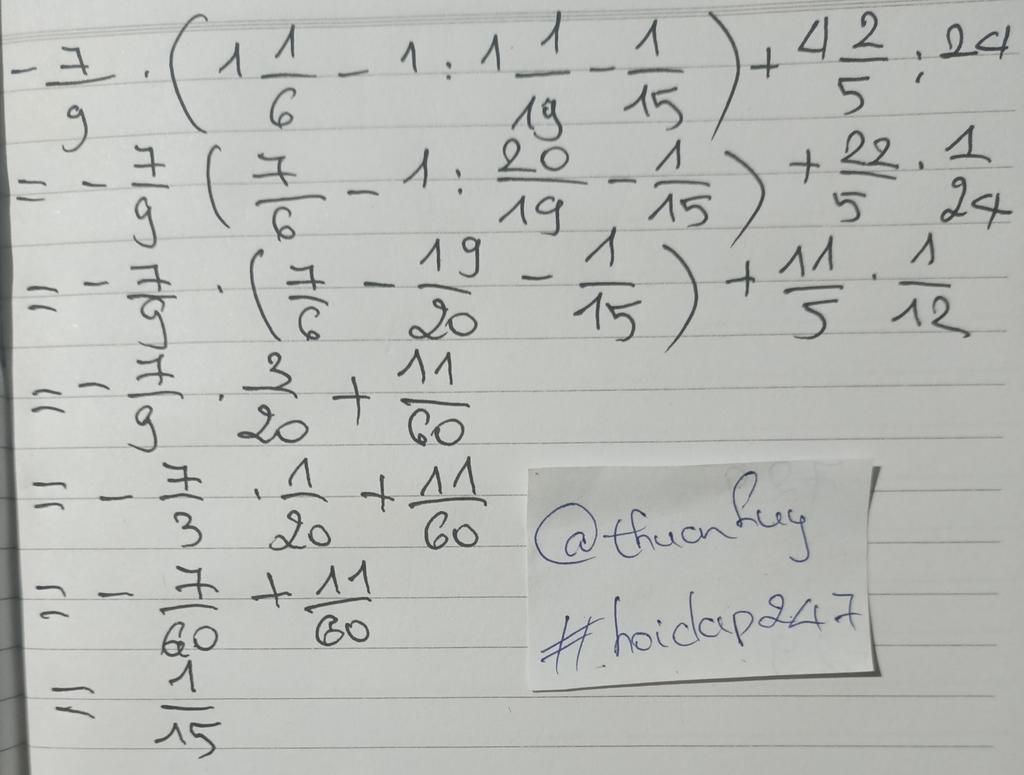 -7/9 . (1 1/6 - 1 : 1 1/19 - 1/15) + 4 2/5 : 24
= -7/9 (7/6 - 1 : 20/19 - 1/15) + 22/5 . 1/24
= -7/9 . (7/6 - 19/20 - 1/15) + 11/5 . 1/12
= -7/9 . 3/20 + 11/60
= -7/3 . 1/20 + 11/60
= -7/60 + 11/60
= 1/15
@thuanhuy
#hoidap247